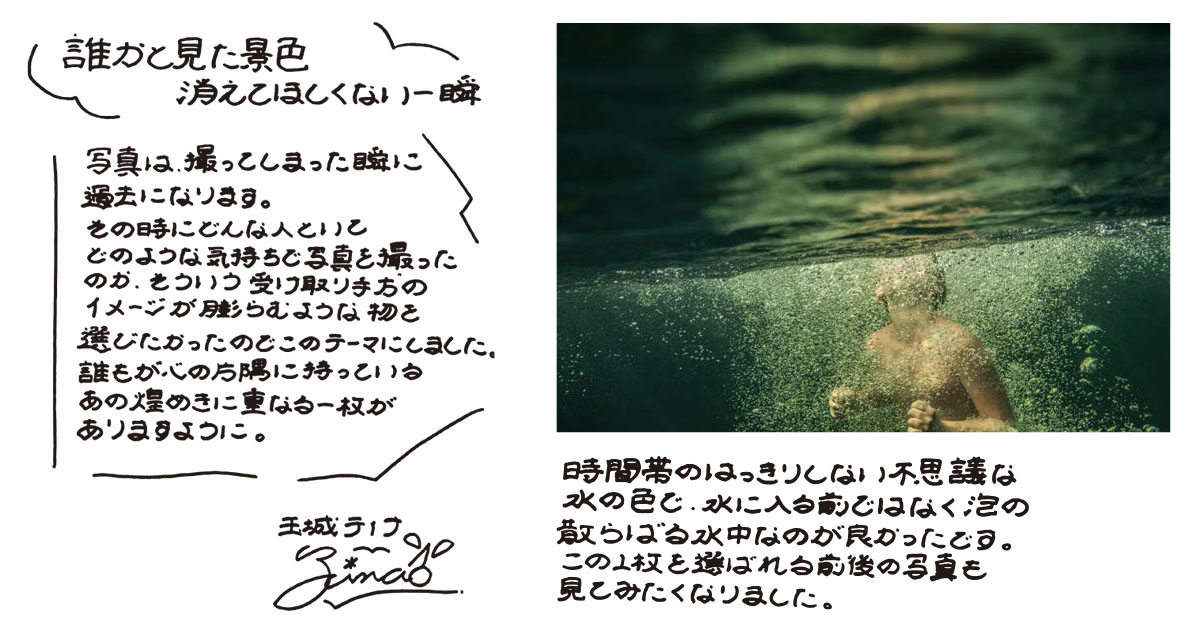 誰かと見た景色
消えてほしくない一瞬
写真は、撮ってしまった瞬に
過去になります。
その時にどんな人といて
どのような気持ちで写真を撮った
のか、そういう受け取り手方の
イメージが膨らむような物を
選びたかったのでこのテーマにしました。
誰もが心の片隅に持っている
あの煌めきに重なる一枚が
ありますように。
玉城ティナ
Tina
時間帯のはっきりしない不思議な
水の色で、水に入る前ではなく泡の
散らばる水中なのが良かったです。
この1枚を選ばれる前後の写真も
見てみたくなりました。